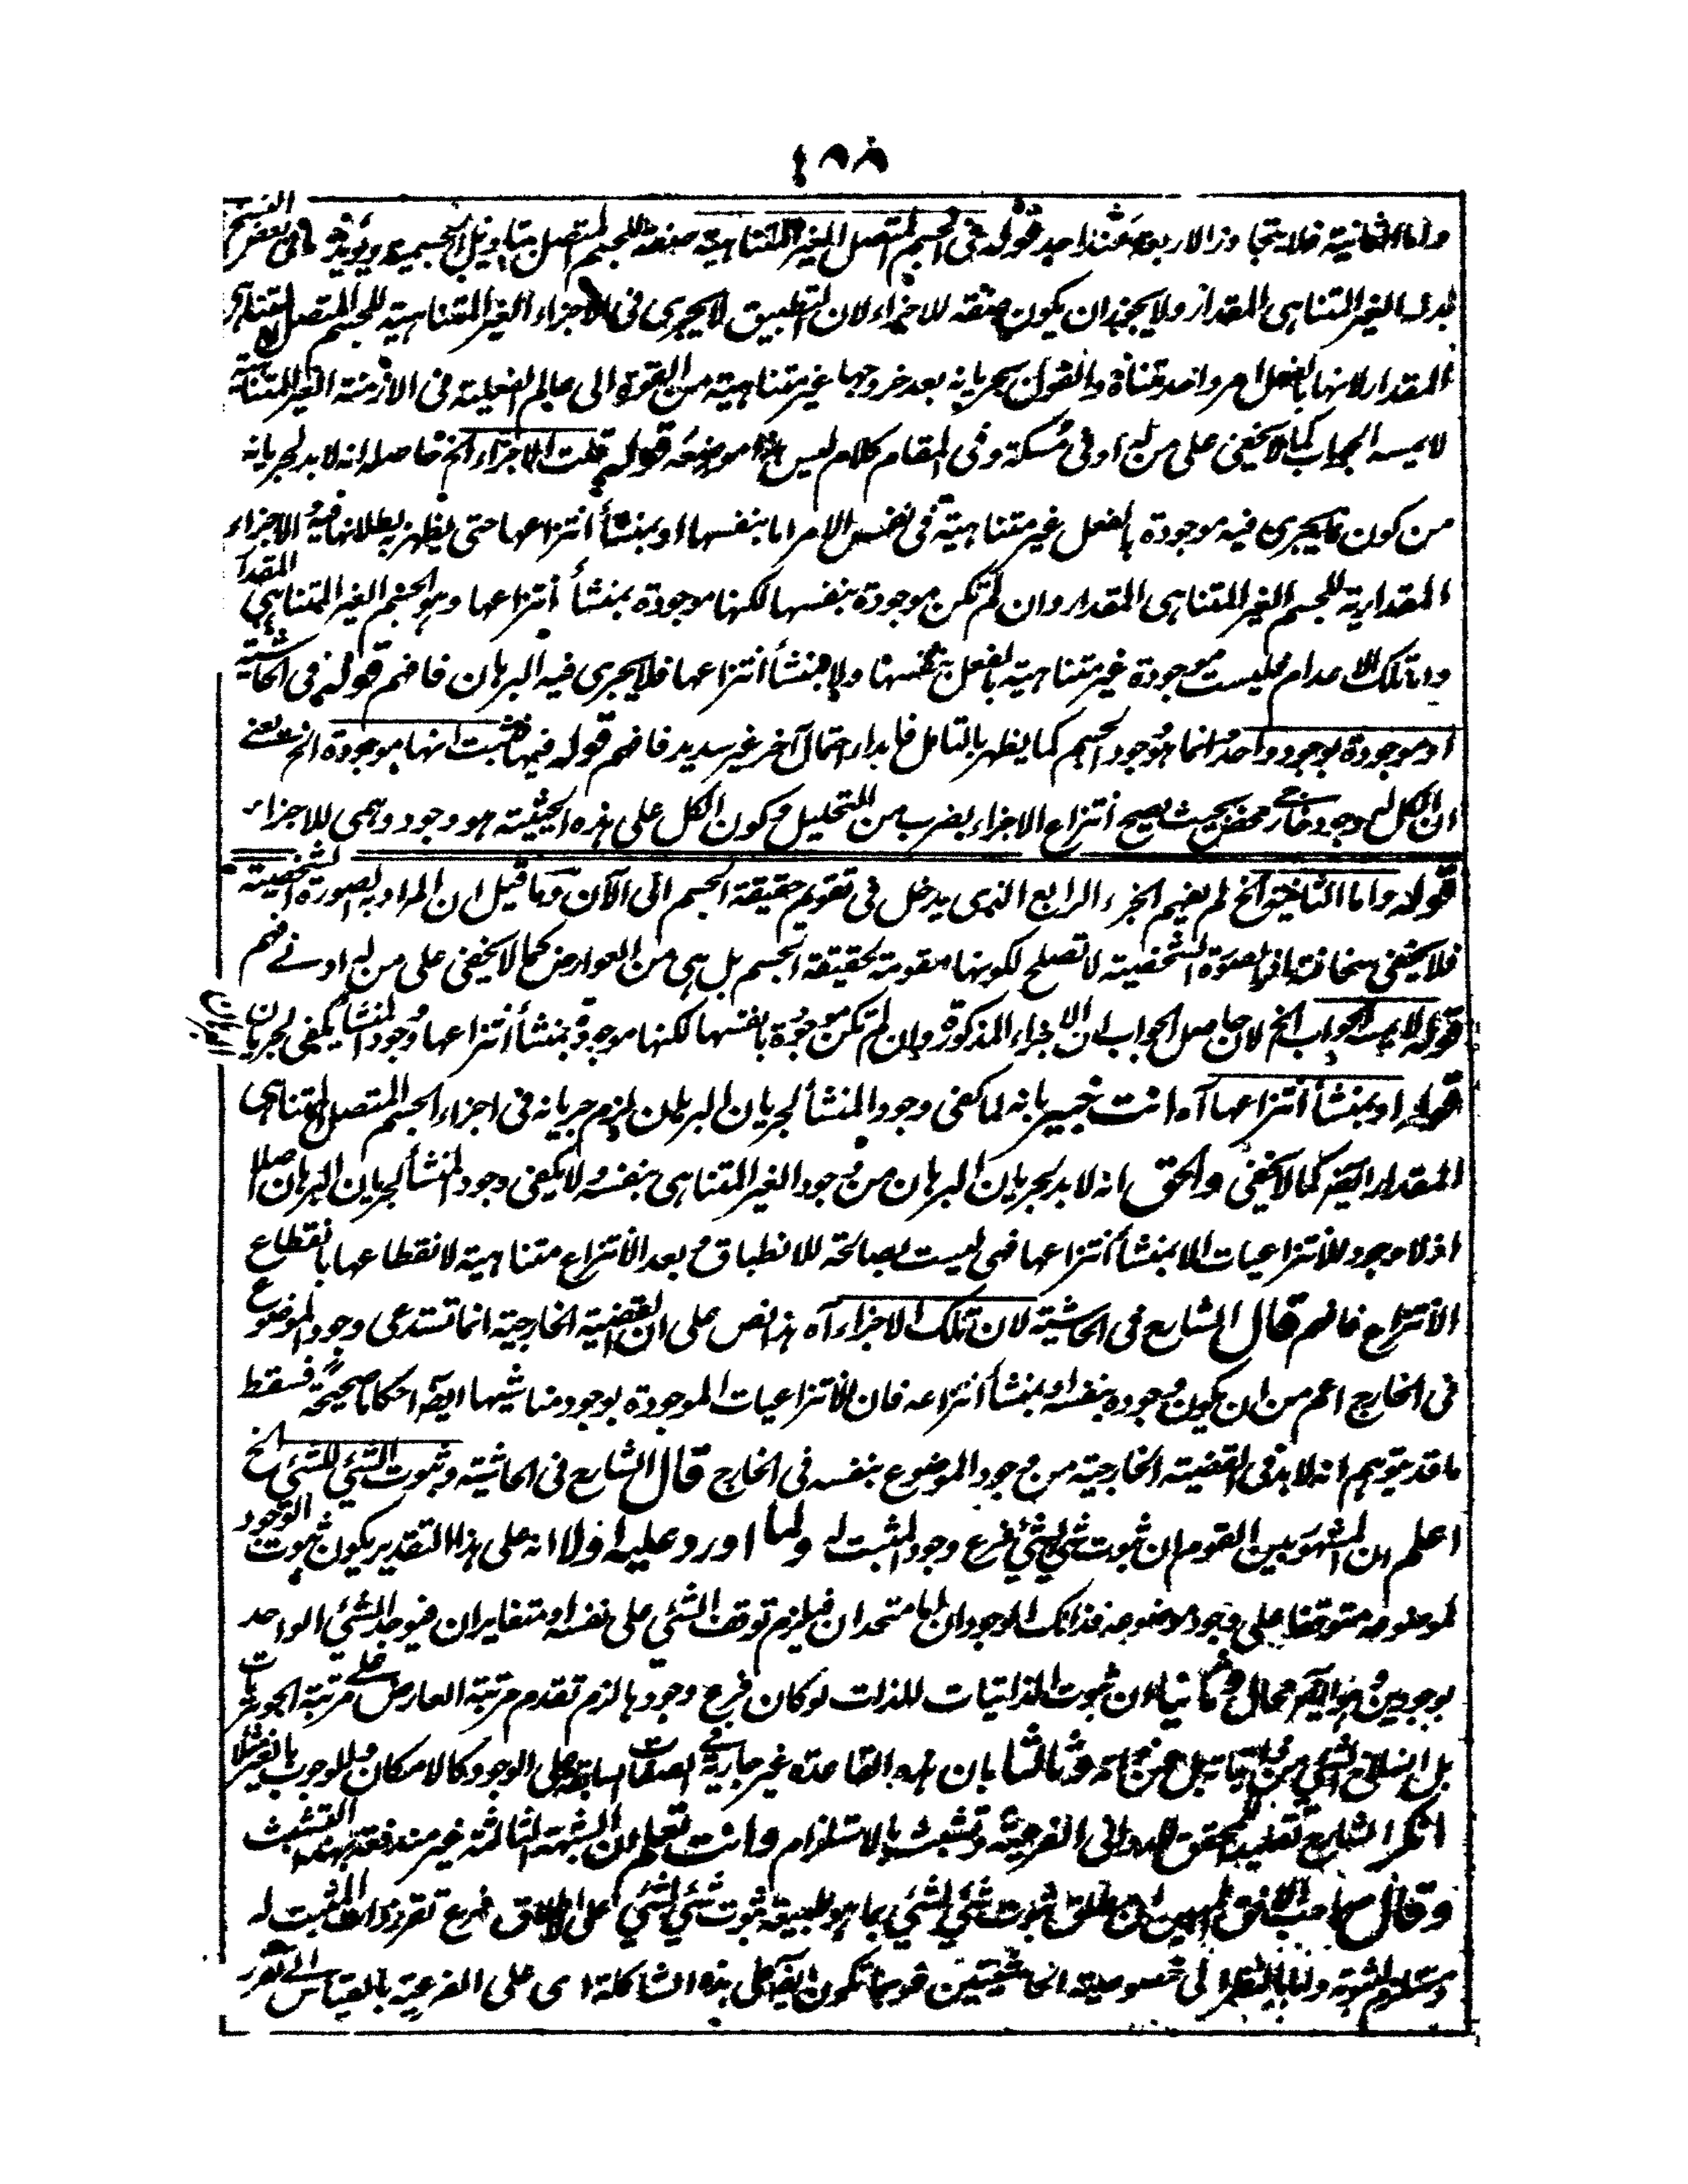 واما الثانية فلا يتجاوز الاربعة قوله فى الجسم المتصل الغير المتناهية صفة للجسم المتصل بتاويل الجسمية ويؤيده ما فى بعض النسخ
بدله الغير المتناهى المقدار ولا يجوز ان يكون صفة للاجزاء لان التطبيق لا يجرى فى الاجزاء الغير المتناهية للجسم المتصل المتناهى
المقدار لانها بالفعل امر واحد متناه والقول بجريانه بعد خروجها غير متناهية من القوة الى عالم الفعلية فى الازمنة الغير المتناهية
لا يمسه الجواب كما لا يخفى على من له ادنى مسكة وفى المقام كلام ليس هذا موضعه قوله قلت الاجزاء الخ حاصله انه لابد لجريانه
من كون ما يجرى فيه موجودة بالفعل غير متناهية فى نفس الامر اما بنفسها او بمنشأ انتزاعها حتى يظهر بطلانها فيه الاجزاء
المقدارية للجسم الغير المتناهى المقدار وان لم تكن موجودة بنفسها لكنها موجودة بمنشأ انتزاعها وهو الجسم الغير المتناهى المقدار
واما تلك الاعدام فليست موجودة غير متناهية بالفعل بنفسها ولا بمنشأ انتزاعها فلا يجرى فيه البرهان فافهم قوله فى الحاشية
او موجودة بوجود واحد انما هو وجود الجسم كما يظهر بالتامل فابداء احتمال آخر غير سديد فافهم قوله فيها فثبت انها موجودة الخ يعنى
ان الكل له وجود خارجى محض بحيث يصح انتزاع الاجزاء بضرب من التحليل وكون الكل على هذه الحيثية هو وجود وهمى للاجزاء
قوله واما الثاخين الخ لم يفهم الجزء الرابع الذى يدخل فى تقويم حقيقة الجسم الى الآن وما قيل ان المراد به الصورة الشخصية
فلا يخفى سخافته فان الصورة الشخصية لا تصلح لكونها مقومة لحقيقة الجسم بل هى من العوارض كما لا يخفى على من له ادنى فهم
قوله لا يمسه الجواب الخ لان حاصل الجواب ان الاجزاء المذكورة وان لم تكن موجودة بانفسها لكنها موجودة بمنشأ انتزاعها ووجود المنشأ يكفى لجريان
قوله او بمنشأ انتزاعها آه انت خبير بانه لما كفى وجود المنشأ لجريان البرهان لزم جريانه فى اجزاء الجسم المتصل المتناهى
المقدار ايضا كما لا يخفى والحق انه لابد لجريان البرهان من وجود الغير المتناهى بنفسه لا يكفى وجود المنشأ لجريان البرهان اصلا
اذ لا وجود للانتزاعيات الا بمنشأ انتزاعها فهى ليست بصالحة للانطباق وبعد الانتزاع متناهية لانقطاعها بانقطاع
الانتزاع فافهم قال الشارح فى الحاشية لان تلك الاجزاء آه هذا نص على ان القضية الخارجية انما تستدعى وجود الموضوع
فى الخارج اعم من ان يكون وجوده بنفسه او بمنشأ انتزاعه فان للانتزاعيات الموجودة بوجود مناشيها ايضا احكاما صحيحة فسقط
ما قد يتوهم انه لابد فى القضية الخارجية من وجود الموضوع بنفسه فى الخارج قال الشارح فى الحاشية وثبوت الشئ للشئ الخ
اعلم ان المشهور بين القوم ان ثبوت شئ لشئ فرع وجود المثبت له ولما اورد عليه اولا انه على هذا التقدير يكون ثبوت الوجود
لموضوعه متوقفا على وجود موضوعه فذانك الوجودان اما متحدان فيلزم توقف الشئ على نفسه او متغايران فيوجد الشئ الواحد
بوجودين وهو ايضا محال وثانيا ان ثبوت الذاتيات للذات لو كان فرع وجودها لزم تقدم مرتبة العارض على مرتبة الجوهريات
بل انسلاخ الشئ من ذاتياته بل عن ذاته وثالثا بان هذه القاعدة غير جارية فى الصفات السابقة على الوجود كالامكان والوجوب بالغير مثلا
انكر الشارح تقليدا للمحقق الدوانى الفرعية وتشبث بالاستلزام وانت تعلم ان الشبهة الثالثة غير مندفعة بهذا التشبث
وقال صاحب الافق المبين ان مطلق ثبوت شئ لشئ بما هو طبيعة ثبوت شئ لشئ على الاطلاق فرع تقرر ذات المثبت له
ومستلزم لثبوته واما بالنظر الى خصوصية الحاشيتين فربما تكون ايضا على هذه الشاكلة اى على الفرعية بالقياس الى تقرر